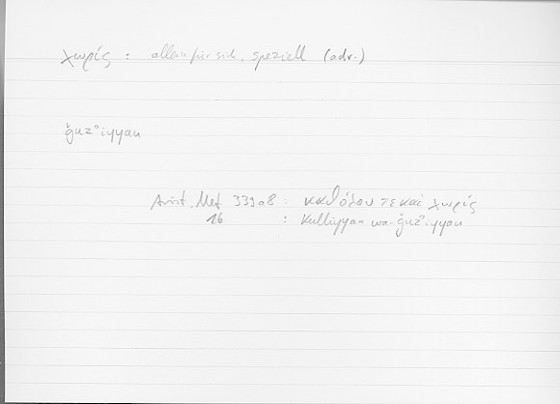 χωρίς : allein für sich, speziell (adv.)
ǧuzʾiyyan
Arist. Met 339a8 : καθόλου τε καὶ χωρίς
16 : kulliyyan wa-ǧuzʾiyyan